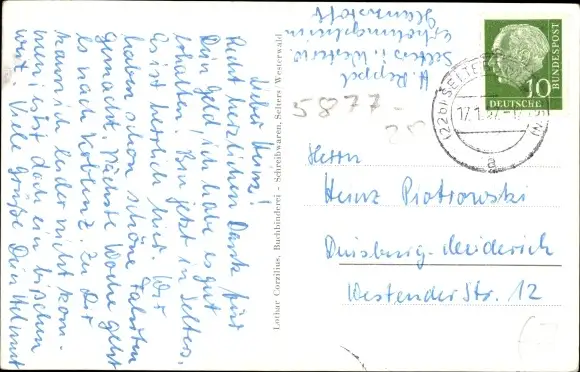 Lieber Heinz!
Recht herzlichen Dank für
Dein Geld, ich habe es gut
erhalten. Bin jetzt in Selters.
Es ist herrlich hier. Wir
haben schon schöne Fahrten
gemacht. Nächste Woche geht
es nach Koblenz. Zu Dir
kann ich leider nicht kom-
men, es ist doch ein bißchen
weit. Viele Grüße Dein Helmut
H. Reppel
Selters i. Westerw
Erholungsheim
Glanzstoff
Lothar Corzilius, Buchbinderei - Schreibwaren, Selters/Westerwald
5877-
28
10
DEUTSCHE
BUNDESPOST
(22b) SELTERS
17.1.57
a
Herrn
Heinz Piotrowski
Duisburg-Meiderich
Westender Str. 12